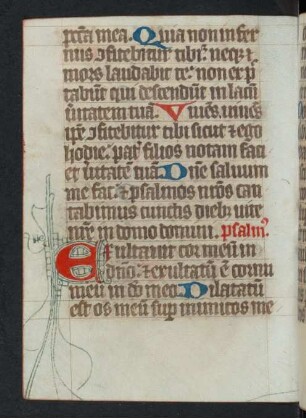 pccā mea. Quia non in fer
nus ꝯfitebitur tibi: neq; et
mors laudabit te: non exp̄
tabūt qui descendūt in lacū
ūitatem tuā. Uiuēs uiuēs
ip̄e ꝯfitebitur tibi sicut et ego
hodie: pat̄ filios notam faci
et uitatē tuā. Dn̄e saluum
me fac: et psalmos nr̄os can
tabimus cunctis dieb; uite
nr̄e in domo domini. psalm⁹.
Exultauit cor meū in
dn̄o: et exaltatū ē cornu
meū in dō meo. Dilatatū
est os meū sup̄ inimicos me